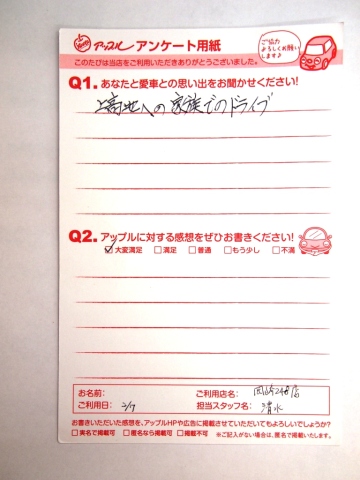 アップル アンケート用紙
ご協力
よろしくお願い
します♪
このたびは当店をご利用いただきありがとうございました。
Q1. あなたと愛車との思い出をお聞かせください!
上高地への家族でのドライブ
Q2. アップルに対する感想をぜひお書きください!
☑大変満足 □満足 □普通 □もう少し □不満
お名前: ご利用店名: 岡崎248店
ご利用日: 2/7 担当スタッフ名: 清水
お書きいただいた感想を、アップルHPや広告に掲載させていただいてもよろしいでしょうか?
□実名で掲載可 □匿名なら掲載可 □掲載不可 ※ご記入がない場合は、匿名で掲載いたします。